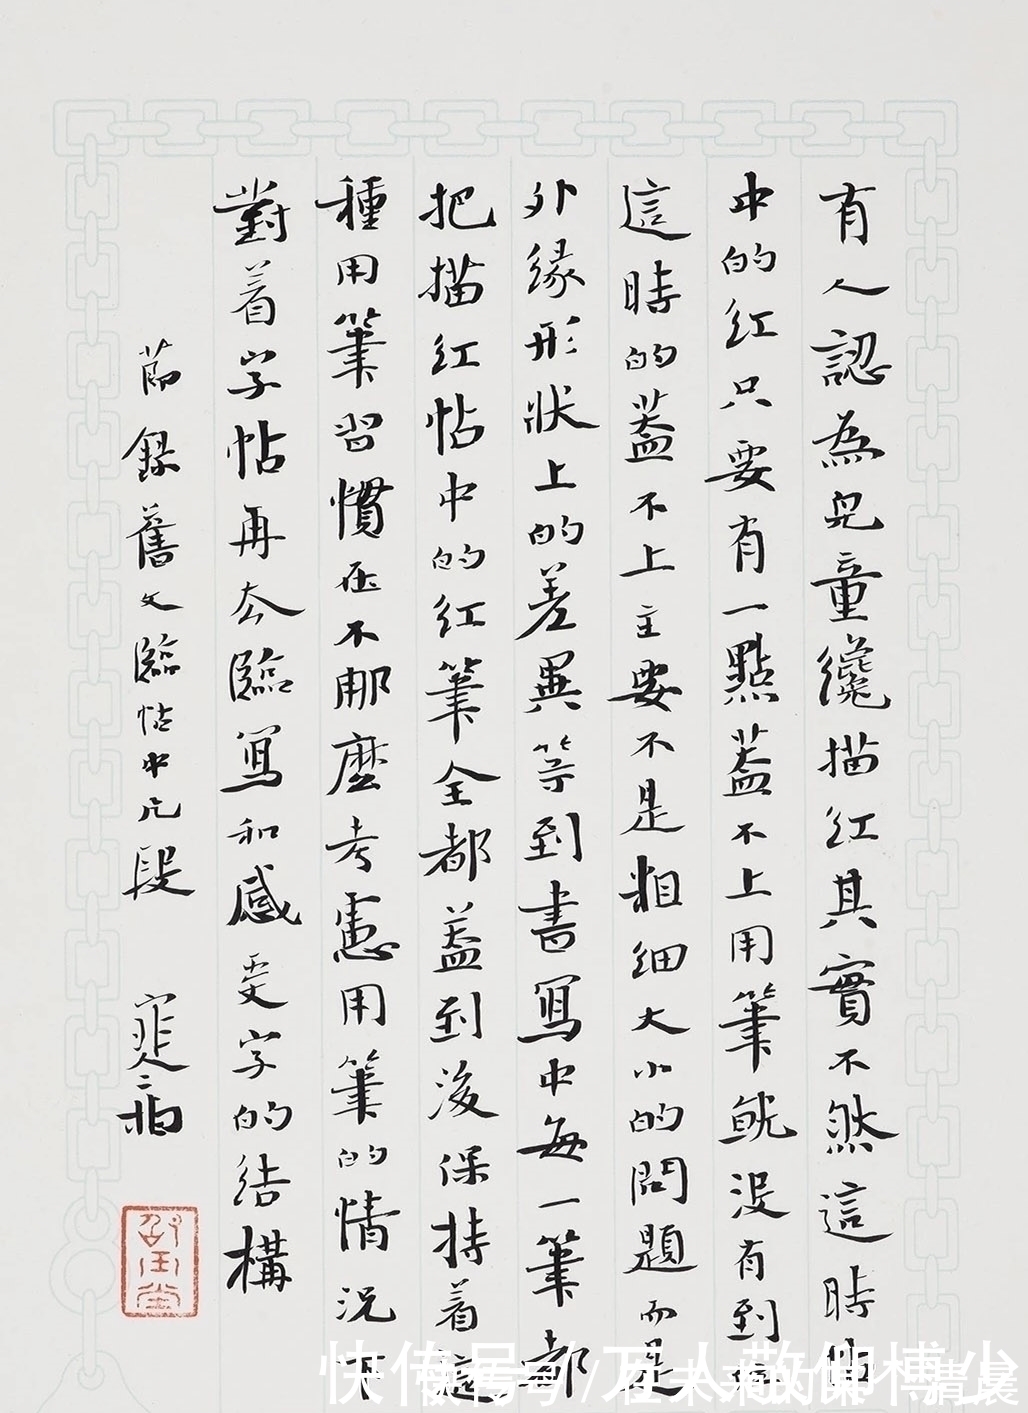 有人認為兒童纔描紅其實不然這時帖
中的紅只要有一點蓋不上用筆就沒有到位
這時的蓋不上主要不是粗細大小的問題而是
外緣形狀上的差異等到書寫中每一筆都
把描紅帖中的紅筆全都蓋到後保持着這
種用筆習慣在不那麼考慮用筆的情況下
對着字帖再去臨寫和感受字的結構
節錄舊文臨帖中片段
快传号/万人敬仰博少